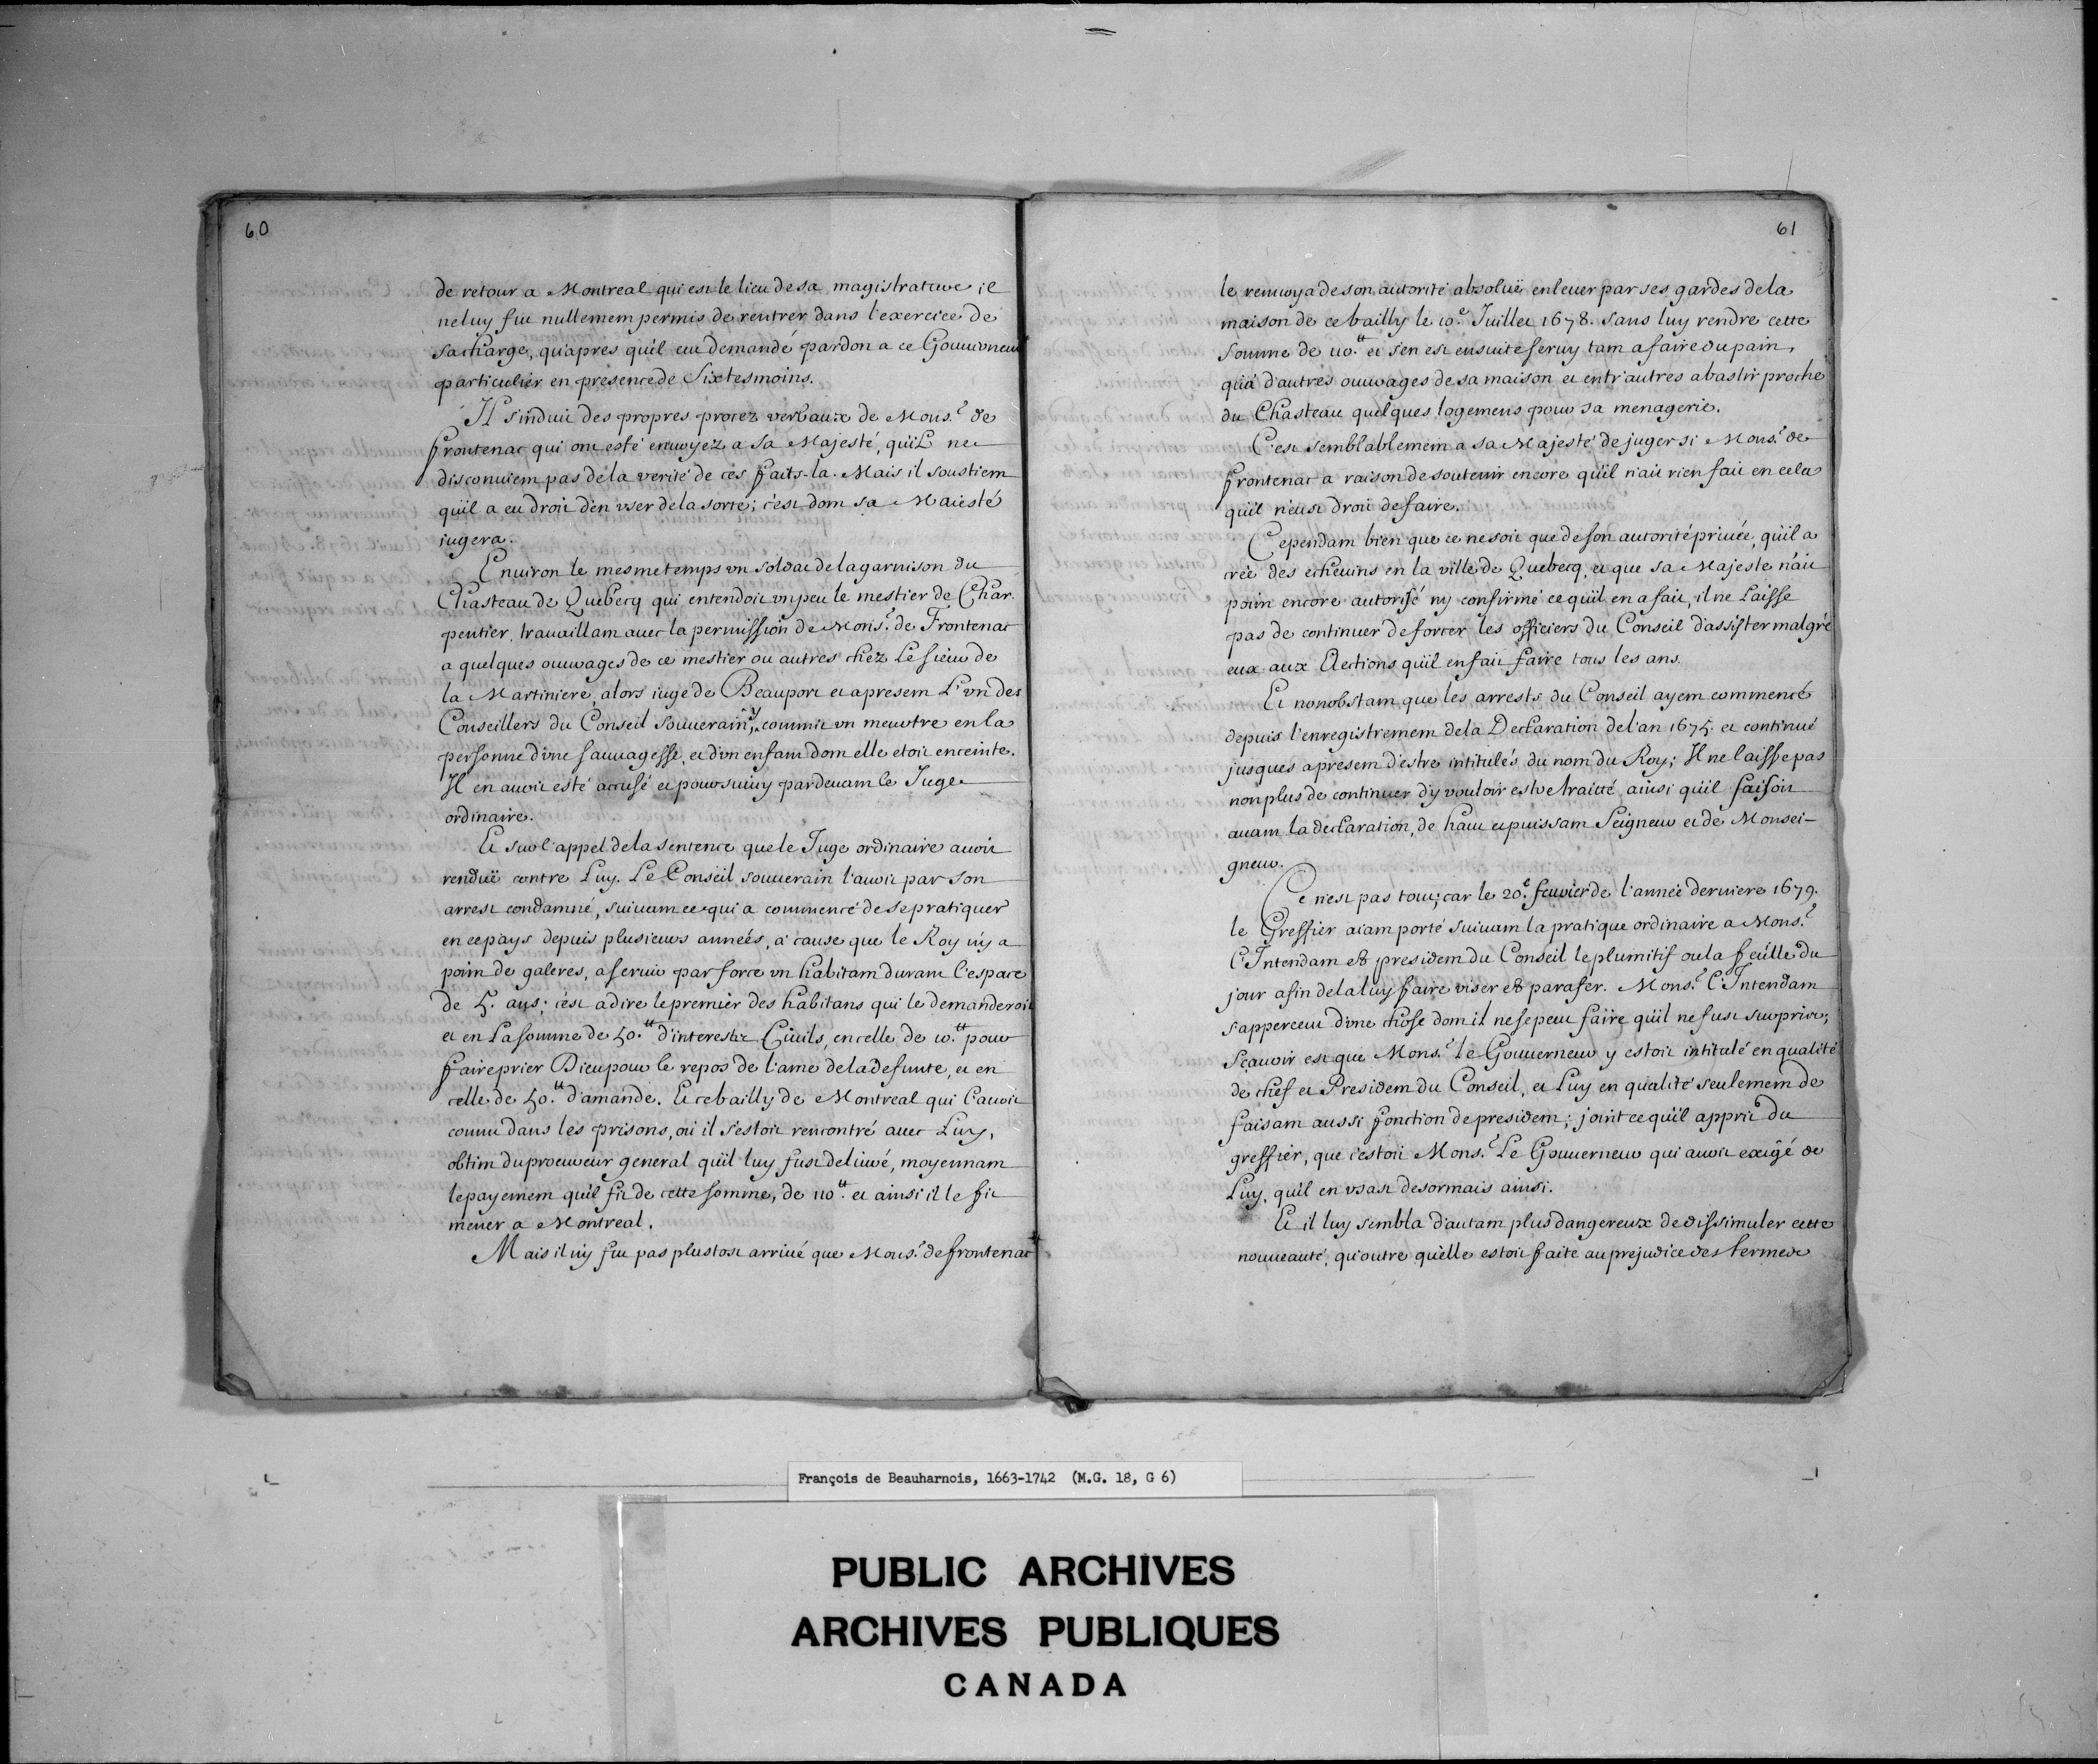 60
de retour a Montreal qui est le lieu de sa magistrature il
ne luy fut nullement permis de rentrer dans l'exercice de
sa charge, qu'apres qu'il eut demandé pardon a ce Gouverneur
particulier en presence de Six tesmoins.
Il s'induit des propres procez verbaux de Mons.r de
frontenac qui ont esté envoyez a sa Majesté, qu'il ne
disconuient pas de la verité de ces faits-la. Mais il soustient
qu'il a eu droit d'en vser de la sorte; c'est dont sa Maiesté
iugera.
Enuiron le mesme temps vn soldat de la garnison du
Chasteau de Quebecq qui entendoit vn peu le mestier de Char-
pentier, trauaillant auec la permission de Mons.r de Frontenac
a quelques ouurages de ce mestier ou autres chez Le sieur de
la Martiniere, alors iuge de Beauport et apresent L'vn des
Conseillers du Conseil souuerain, y commit vn meurtre en la
personne d'vne sauuagesse, et d'vn enfant dont elle etoit enceinte.
Il en auoit esté accusé et poursuiuy pardeuant le Juge
ordinaire.
Et sur l'appel de la sentence que le Juge ordinaire auoit
renduë contre Luy. Le Conseil souuerain l'auoit par son
arrest condamné, suiuant ce qui a commencé de se pratiquer
en ce pays depuis plusieurs années, a cause que le Roy n'y a
point de galeres, a seruir par force vn habitant durant l'espace
de 5. ans; c'est a dire le premier des habitans qui le demanderoit
et en La somme de 50.tt d'interests Ciuils, en celle de 10.tt pour
faire prier Dieu pour le repos de l'ame de la defunte, et en
celle de 50.tt d'amande. Et ce bailly de Montreal qui l'auoit
connu dans les prisons, où il s'estoit rencontré auec Luy,
obtint du procureur general qu'il luy fust deliuré, moyennant
le payement qu'il fit de cette somme, de 110.tt et ainsi il le fit
mener a Montreal.
Mais il n'y fut pas plustost arriué que Mons.r de frontenac
61
le renuoya de son autorité absoluë enleuer par ses gardes de la
maison de ce bailly le 10.e Juillet 1678. sans luy rendre cette
somme de 110.tt et s'en est ensuite seruy tant a faire du pain,
qu'a d'autres ouurages de sa maison et entr'autres a bastir proche
du Chasteau quelques logemens pour sa menagerie.
C'est semblablement a sa Majesté de juger si Mons.r de
frontenac a raison de soutenir encore qu'il n'ait rien fait en cela
qu'il n'eust droit de faire.
Cependant bien que ce ne soit que de son autorité priuée, qu'il a
creé des echeuins en la ville de Quebecq, et que sa Majeste n'ait
point encore autorisé ny confirmé ce qu'il en a fait, il ne Laisse
pas de continuer de forcer les officiers du Conseil d'assister malgré
eux aux Elections qu'il en fait faire tous les ans.
Et nonobstant que les arrests du Conseil ayent commencé
depuis l'enregistrement de la Declaration de l'an 1675. et continué
jusques apresent d'estre intitulés du nom du Roy; Il ne laisse pas
non plus de continuer d'y vouloir estre traitté ainsi qu'il faisoit
auant la declaration, de haut et puissant Seigneur et de Monsei-
gneur.
Ce n'est pas tout; car le 20.e feurier de l'année derniere 1679.
le Greffier aiant porté suiuant la pratique ordinaire a Mons.r
L'Intendant & president du Conseil le plumitif ou la feüille du
jour afin de la luy faire viser & parafer. Mons.r L'Intendant
s'apperceut d'vne chose dont il ne se peut faire qu'il ne fust surpris;
Sçauoir est que Mons.r le Gouuerneur y estoit intitulé en qualité
de chef et President du Conseil, et Luy en qualité seulement de
faisant aussi fonction de president; joint ce qu'il apprit du
greffier, que c'estoit Mons.r Le Gouuerneur qui auoit exigé de
Luy, qu'il en vsast desormais ainsi.
Et il luy sembla d'autant plus dangereux de dissimuler cette
nouueauté, qu'outre qu'elle estoit faite au prejudice des termes
François de Beauharnois, 1663-1742 (M.G. 18, G 6)
PUBLIC ARCHIVES
ARCHIVES PUBLIQUES
CANADA